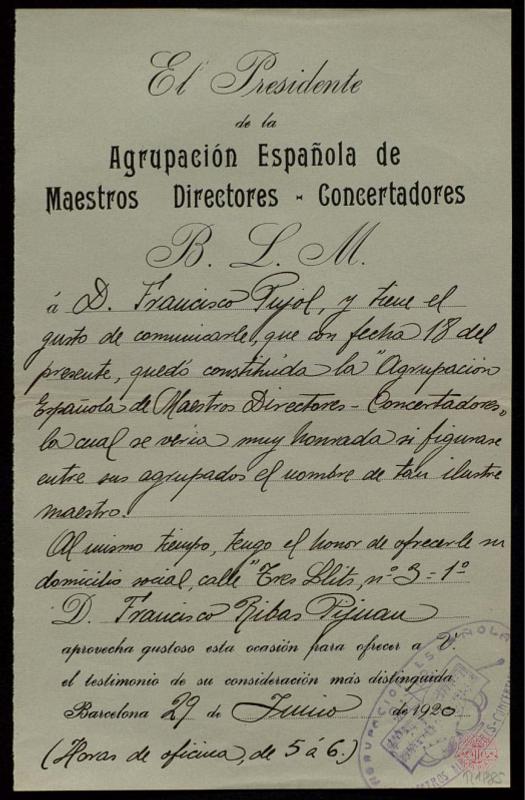 El Presidente
de la
Agrupación Española de
Maestros Directores - Concertadores
B. L. M.
á D. Francisco Pujol, y tiene el
gusto de comunicarle, que con fecha 18 del
presente, quedó constituída la "Agrupación
Española de Maestros Directores - Concertadores"
la cual se vería muy honrada si figurase
entre sus agrupados el nombre de tan ilustre
maestro.
Al mismo tiempo, tengo el honor de ofrecerle su
domicilio social, calle "Tres Llits, nº 3 = 1º
D. Francisco Ribas Pijuan
aprovecha gustoso esta ocasión para ofrecer a V.
el testimonio de su consideración más distinguida.
Barcelona 29 de Junio de 1920
(Horas de oficina, de 5 á 6.)
AGRUPACION ESPAÑOLA